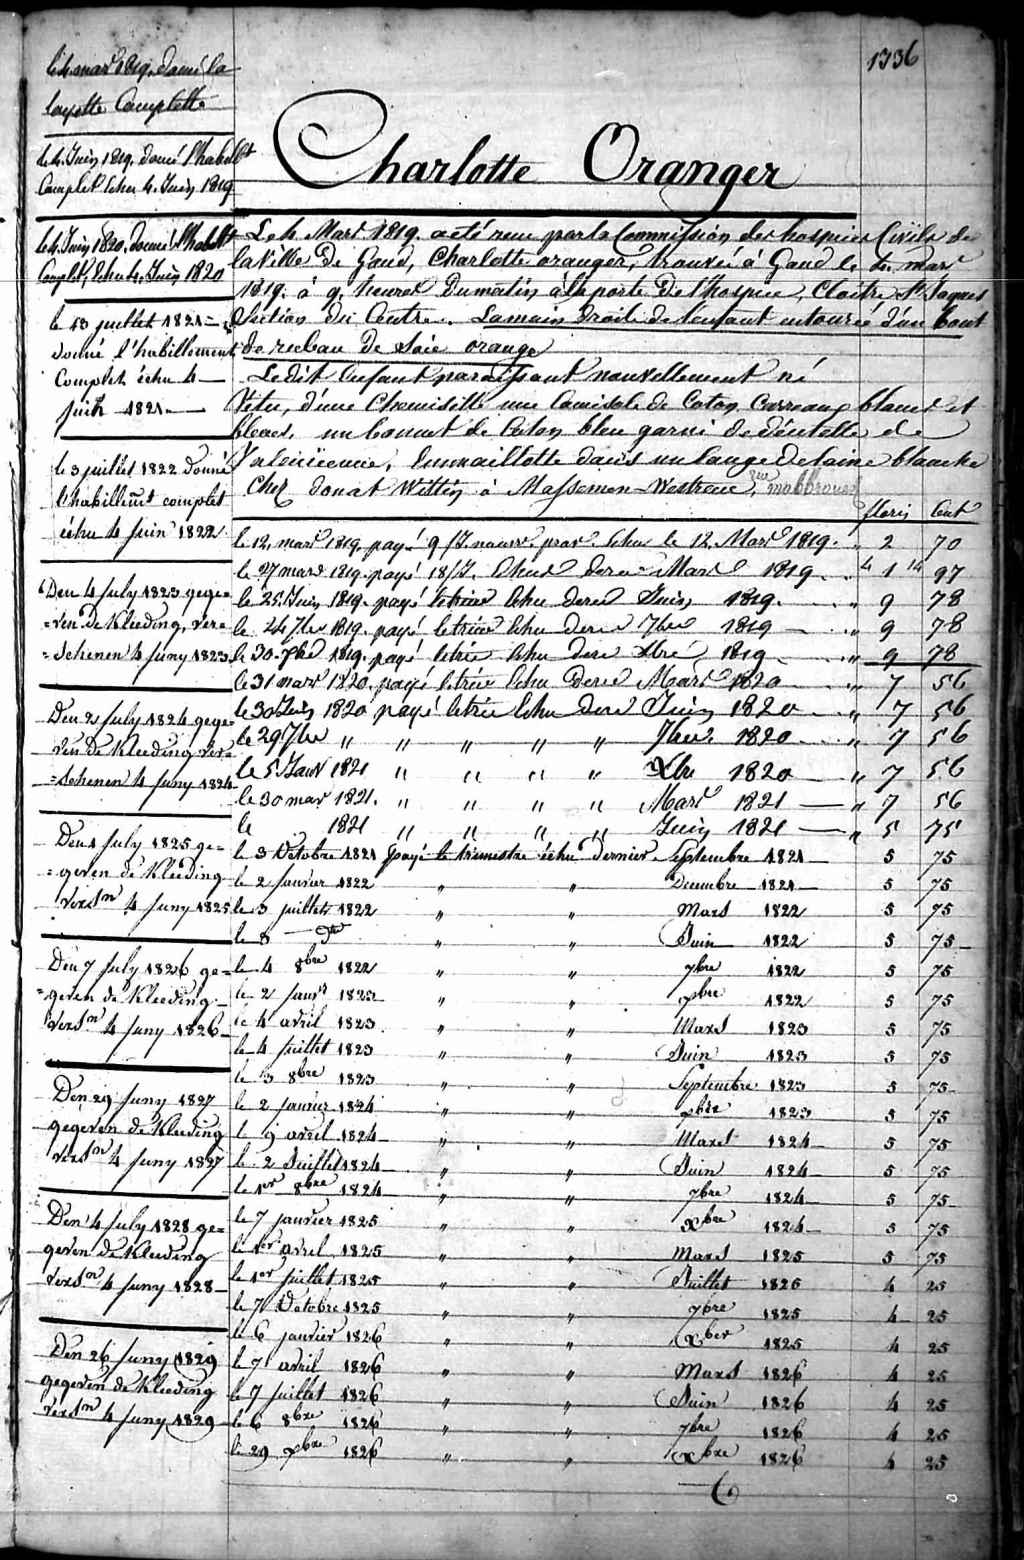 1736
le 4 mars 1819. donné la
layette Complette
le 4. Juin 1819. donné l'habillt
Complet échu 4. Juin 1819
le 4. Juin 1820. donné l'habillt
Complet, échu 4. Juin 1820
le 13 juillet 1821 =
donné l'habillement
Complet échu 4 —
juin 1821. —
le 3 juillet 1822 donné
l'habillemt complet
échu 4 juin 1822
Den 4 July 1823 gege=
=ven de Kleeding, vers=
=schenen 4 juny 1823
Den 2 July 1824 gege=
ven de Kleeding ver=
=schenen 4 juny 1824
Den 1 July 1825 ge=
=geven de Kleeding
verssn 4 juny 1825
Den 7 July 1826 ge=
=geven de Kleeding
verssn 4 juny 1826
Den 29 juny 1827
gegeven de Kleeding
verssn 4 juny 1827
Den 4 July 1828 ge=
geven de Kleeding
verssn 4 juny 1828
Den 26 juny 1829
gegeven de Kleeding
verssn 4 juny 1829
Charlotte Oranger
Le 4. Mars 1819. a été reçue par la Commission des hospices Civils de
la Ville De Gand, Charlotte oranger, trouvée à Gand le 4. mars
1819. à 9. heures Du matin à la porte De l'hospice, Cloitre St. Jaques
Section du Centre. La main droite de l'enfant entourée d'un bout
de ruban de Soie orange
Le dit Enfant paraissant nouvellement né
Vêtu, d'une Chemisette une Camisole de Coton Carreaux blancs et
bleues, un bonnet de Coton bleu garni de déntelle de
Valencienne, Emmaillotte dans un lange de laine blanche
Chez donat Wittin à Massemen-Westrem,
floris Cent
le 12. mars 1819. payé 9 fl. nourr. prov. échu le 12. Mars 1819. " 2 70
le 27 mars 1819. payé 18 fl. échus dern Mars 1819 4 1 14 97
le 25 Juin 1819. payé le trim échu dernr Juin 1819. " 9 78
le 24 7bre 1819. payé le trim échu dern 7bre 1819 — " 9 78
le 30 Xbre 1819. payé le trim échu dern Xbre 1819 " 9 78
le 31 mars 1820. payé le trim échu dern Mars 1820 " 7 56
le 30 Juin 1820 payé le trim échu dern Juin 1820 " 7 56
le 29 7bre " " " " " 7bre. 1820 " 7 56
le 5 Janv 1821 " " " " Xbre 1820 — " 7 56
le 30 mar 1821. " " " " Mars 1821 — " 7 56
le 1821 " " " " Juin 1821 — " 5 75
le 3 Octobre 1821 payé le trimestre échu dernier Septembre 1821 — 5 75
le 2 janvier 1822 " " Décembre 1821 — 5 75
le 3 juillet 1822 " " Mars 1822 5 75
le 8 — do " " Juin 1822 5 75 —
le 4 8bre 1822 " " 7bre 1822 5 75
le 2 janvr 1823 " " xbre 1822 5 75
le 4 avril 1823 " " Mars 1823 5 75
le 4 Juillet 1823 " " Juin 1823 5 75
le 3 8bre 1823 " " Septembre 1823 5 75
le 2 janvier 1824 " " xbre 1823 5 75
le 9 avril 1824 " " Mars 1824 5 75
le 2 Juillet 1824 " " Juin 1824 5 75
le 1er 8bre 1824 " " 7bre 1824 5 75
le 7 janvier 1825 " " xbre 1824 5 75
le 1er avril 1825 " " Mars 1825 5 75
le 1er juillet 1825 " " Juillet 1825 4 25
le 7 Octobre 1825 " " 7bre 1825 4 25
le 6 janvier 1826 " " xber 1825 4 25
le 7 avril 1826 " " Mars 1826 4 25
le 7 juillet 1826 " " Juin 1826 4 25
le 6 8bre 1826 " " 7bre 1826 4 25
le 29 xbre 1826 " " xbre 1826 4 25